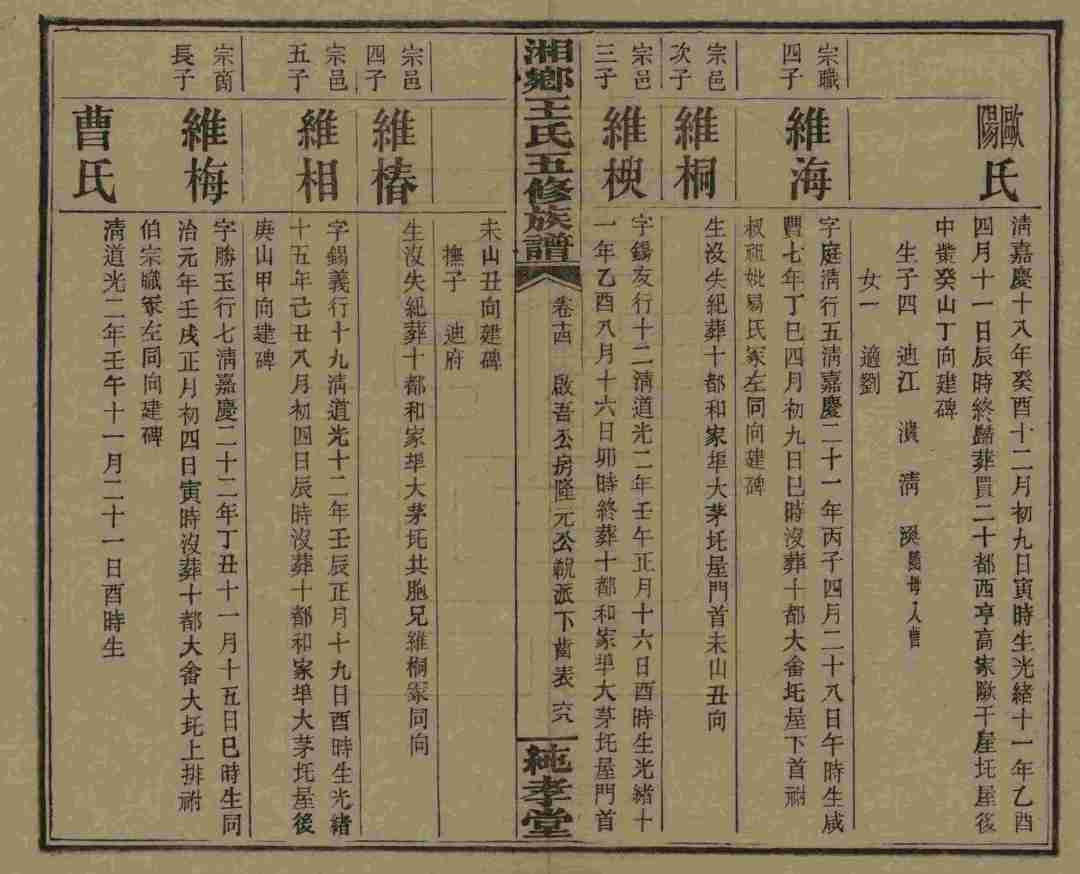 歐陽氏
清嘉慶十八年癸酉十二月初九日寅時生光緒十一年乙酉
四月十一日辰時終歸葬買二十都西亨高家
屋後
中癸山丁向建碑
生子四 迪江 清 溪
女一 適劉
宗職
四子
維海
字庭清行五清嘉慶二十一年丙子四月二十八日午時生咸
豐七年丁巳四月初九日巳時沒葬十都大畬坵屋下首祔
叔祖妣易氏冢左同向建碑
宗邑
次子
維桐
生沒失紀葬十都和家埠大茅坵屋門首未山丑向
宗邑
三子
維
字錫友行十二清道光二年壬午正月十六日酉時生光緒十
一年乙酉八月十六日卯時終葬十都和家埠大茅坵屋門首
湘鄉王氏五修族譜
卷十四 啟吾公房隆元公
派下齒表 六八
純孝堂
未山丑向建碑
撫子 迪府
宗邑
四子
維椿
生沒失紀葬十都和家埠大茅坵共胞兄維桐冢同向
宗邑
五子
維相
字錫義行十九清道光十二年壬辰正月十九日酉時生光緒
十五年己丑八月初四日辰時沒葬十都和家埠大茅坵屋後
庚山甲向建碑
宗
長子
維梅
字勝玉行七清嘉慶二十二年丁丑十一月十五日巳時生同
治元年壬戌正月初四日寅時沒葬十都大畬大坵上排祔
伯宗職冢左同向建碑
曹氏
清道光二年壬午十一月二十一日酉時生